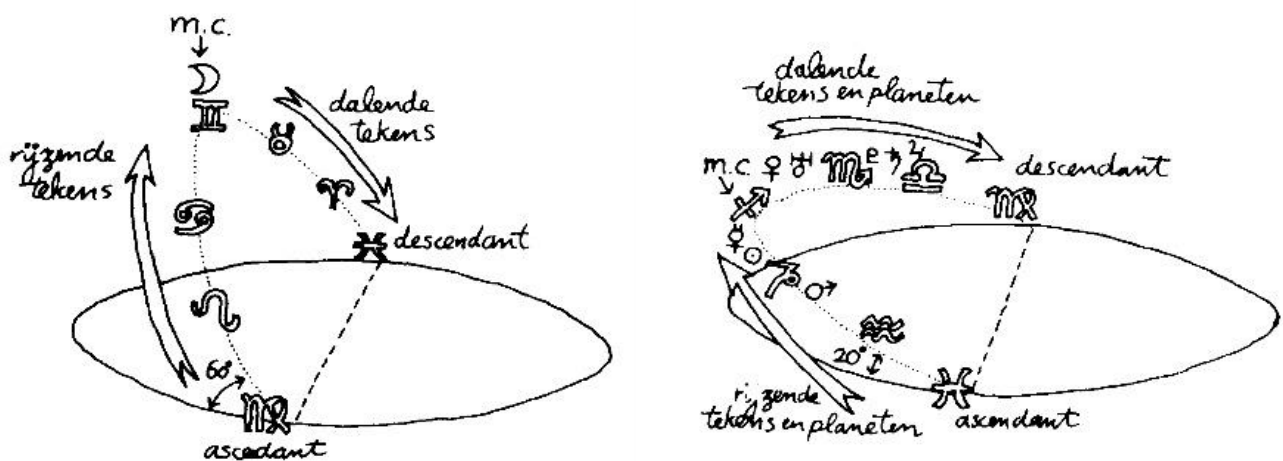 m.c.
dalende
tekens
rijzende
tekens
descendant
60°
ascedant
dalende
tekens en planeten
m.c.
descendant
20°
rijzende
tekens en planeten
ascendant